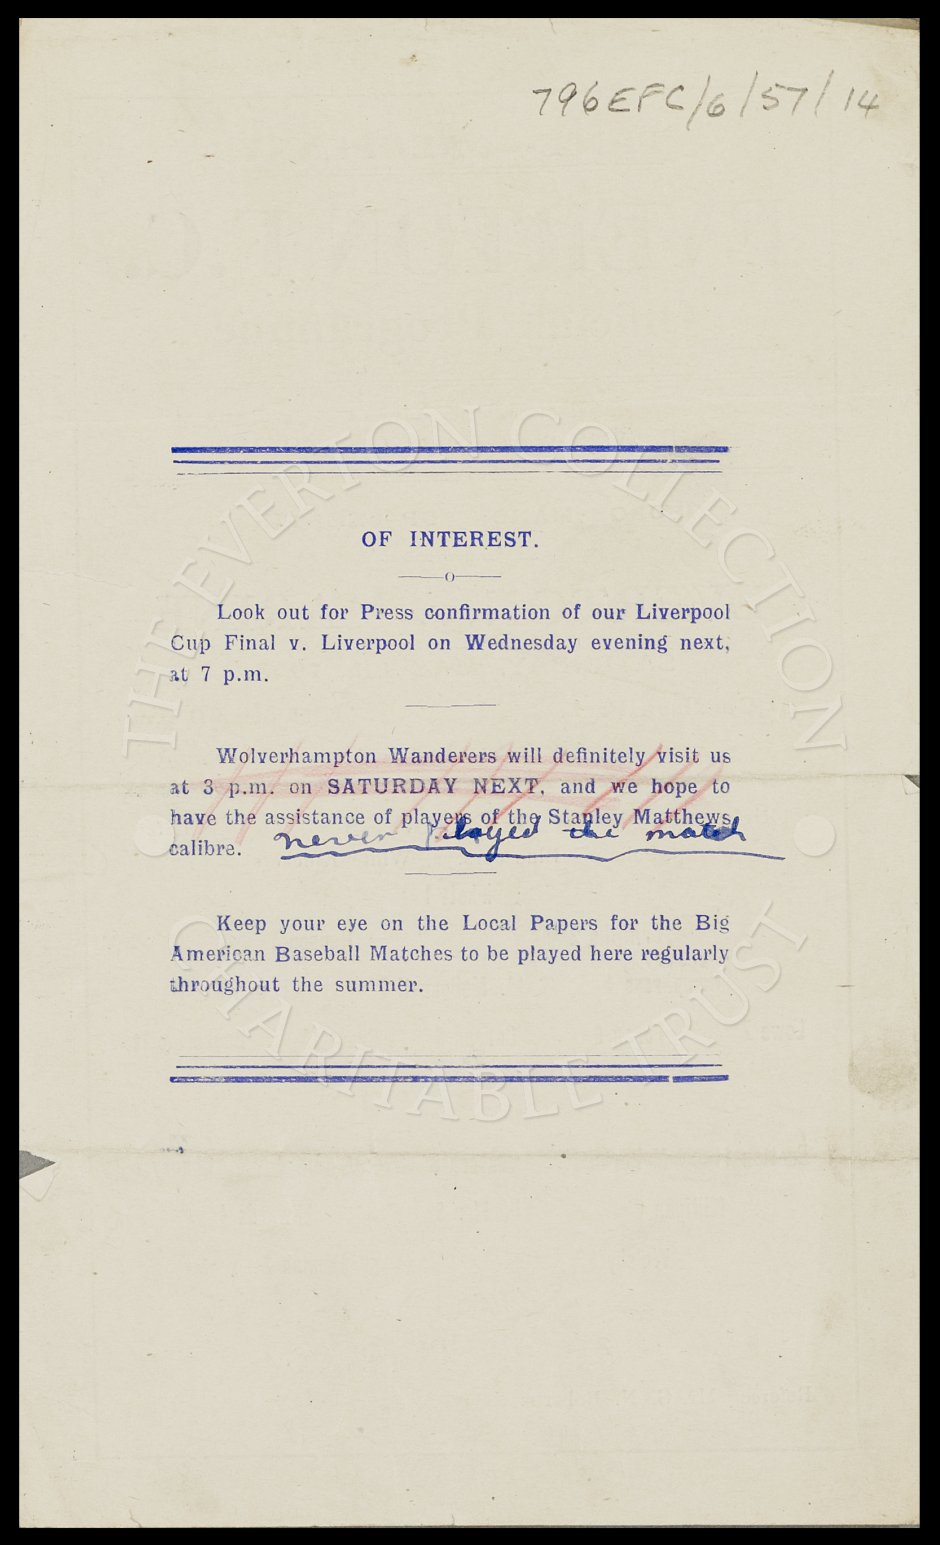 796EFC/6/57/14
OF INTEREST.
Look out for Press confirmation of our Liverpool
Cup Final v. Liverpool on Wednesday evening next,
at 7 p.m.
Wolverhampton Wanderers will definitely visit us
at 3 p.m. on SATURDAY NEXT, and we hope to
have the assistance of players of the Stanley Matthews
calibre.
never played the match
Keep your eye on the Local Papers for the Big
American Baseball Matches to be played here regularly
throughout the summer.
THE EVERTON COLLECTION
CHARITABLE TRUST